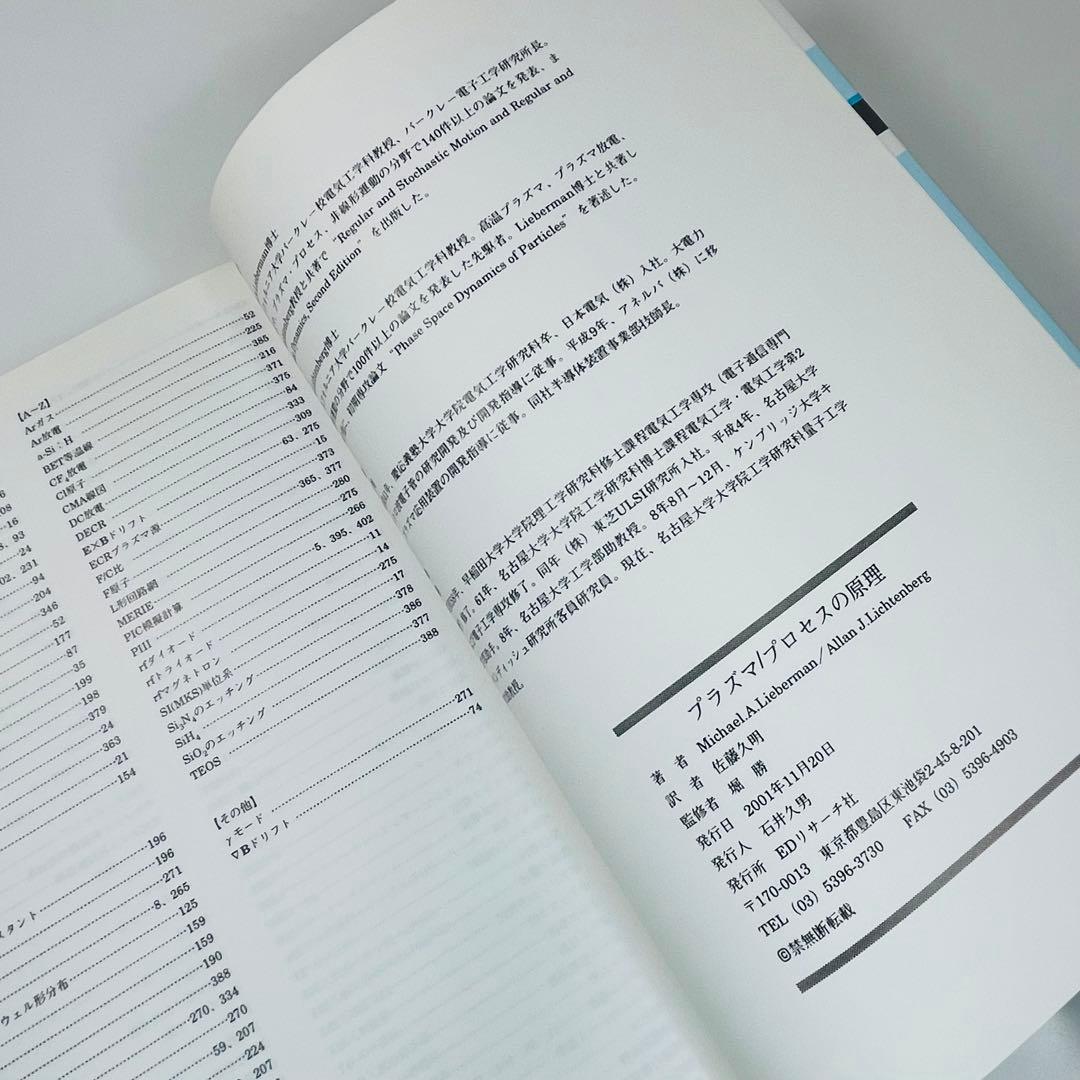 6
08
16
8、93
24
02、231
94
204
346
52
177
87
35
199
198
379
24
363
21
154
196
スタント 196
271
8、265
125
159
ウェル形分布 159
190
388
270、334
270
59、207
224
207
52
【A-Z】 225
Arガス 385
Ar放電 216
a-Si:H 371
BET等温線 375
CF₄放電 84
Cl原子 333
CMA線図 309
DC放電 63、275
DECR 15
E×Bドリフト 373
ECRプラズマ源 377
F/C比 365、280
F原子 275
L形回路網 266
MERIE 5、395、402
PIC模擬計算 11
PIII 14
rfダイオード 275
rfトライオード 17
rfマグネトロン 378
SI(MKS)単位系 386
Si₃N₄のエッチング 377
SiH₄ 388
SiO₂のエッチング
TEOS
【その他】 271
γモード 74
∇Bドリフト
erman博士
ア大学バークレー校電気工学科教授、バークレー電子工学研究所長。
プラズマ・プロセス、非線形運動の分野で140件以上の論文を発表、ま
berg教授と共著で “Regular and Stochastic Motion and Regular and
Dynamics, Second Edition” を出版した。
nberg博士
ルニア大学バークレー校電気工学科教授。高温プラズマ、プラズマ放電、
の分野で100件以上の論文を発表した先駆者。Lieberman博士と共著し
初期専攻論文 “Phase Space Dynamics of Particles” を著述した。
慶応義塾大学大学院電気工学研究科卒、日本電気（株）入社。大電力
電子者の研究開発及び開発指導に従事。平成9年、アネルバ（株）に移
ズマ応用装置の開発指導に従事。同社半導体装置事業部技師長。
早稲田大学大学院理工学研究科修士課程電気工学専攻（電子通信専門
修了。61年、名古屋大学大学院工学研究科博士課程電気工学・電気工学第2
電子工学専攻修了。同年（株）東芝ULSI研究所入社。平成4年、名古屋大学
助手。8年、名古屋大学工学部助教授。8年8月～12月、ケンブリッジ大学キ
ンディッシュ研究所客員研究員。現在、名古屋大学大学院工学研究科量子工学
助教授。
プラズマ/プロセスの原理
著者 Michael.A.Lieberman／Allan J.Lichtenberg
訳者 佐藤久明
監修者 堀 勝
発行日 2001年11月20日
発行人 石井久男
発行所 EDリサーチ社
〒170-0013 東京都豊島区東池袋2-45-8-201
TEL（03）5396-3730 FAX（03）5396-4903
©禁無断転載